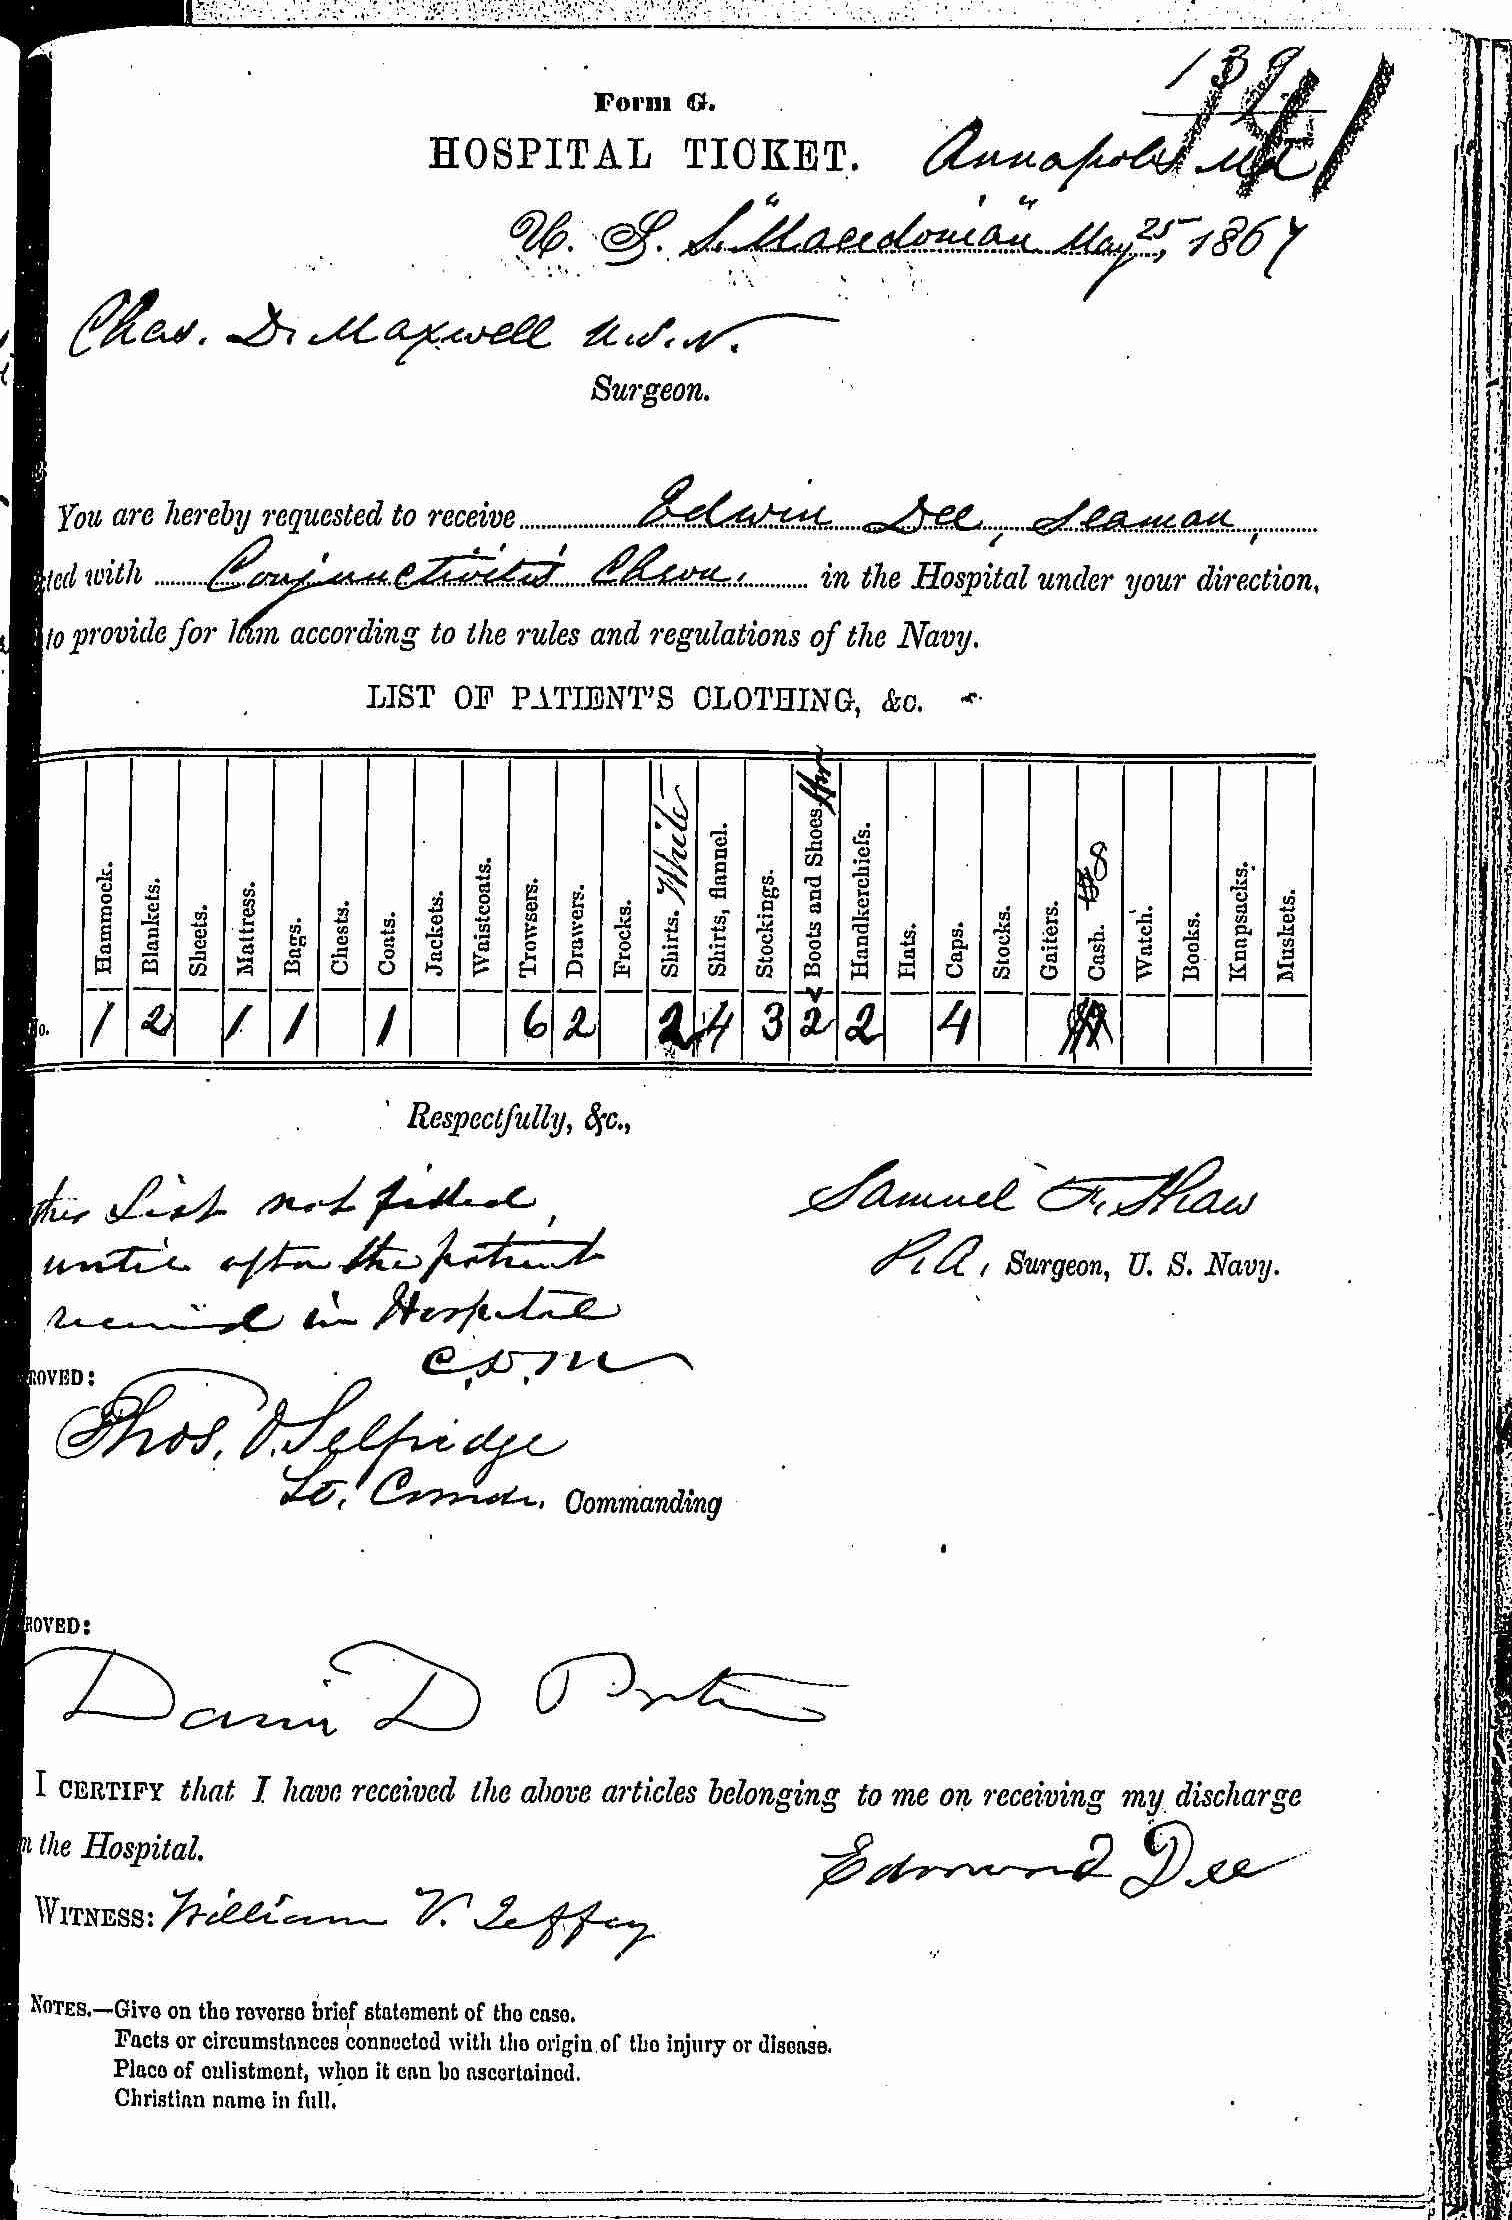 139
141
Form G.
HOSPITAL TICKET. Annapolis Md
U. S. S. "Macedonian" May 25, 1867
Chas. D. Maxwell U.S.N.
Surgeon.
You are hereby requested to receive Edwin Dee, Seaman,
ted with Conjunctivitis Chron. in the Hospital under your direction,
to provide for him according to the rules and regulations of the Navy.
LIST OF PATIENT'S CLOTHING, &c.
Hammock. Blankets. Sheets. Mattress. Bags. Chests. Coats. Jackets. Waistcoats. Trowsers. Drawers. Frocks. Shirts. White Shirts, flannel. Stockings. Boots and Shoes. Handkerchiefs. Hats. Caps. Stocks. Gaiters. Cash. $8 Watch. Books. Knapsacks. Muskets.
No. 1 2 1 1 1 6 2 2 4 3 2 2 4
Respectfully, &c.,
this List not filled,
until after the patient
received in Hospital
C.D.M
Samuel F. Shaw
P.A. Surgeon, U. S. Navy.
ROVED:
Thos. O. Selfridge
Lt. Comdr. Commanding
ROVED:
David D Porter
I CERTIFY that I have received the above articles belonging to me on receiving my discharge
the Hospital.
Edmund Dee
WITNESS: William V. Jeffay
NOTES.—Give on the reverse brief statement of the case.
Facts or circumstances connected with the origin of the injury or disease.
Place of enlistment, when it can be ascertained.
Christian name in full.